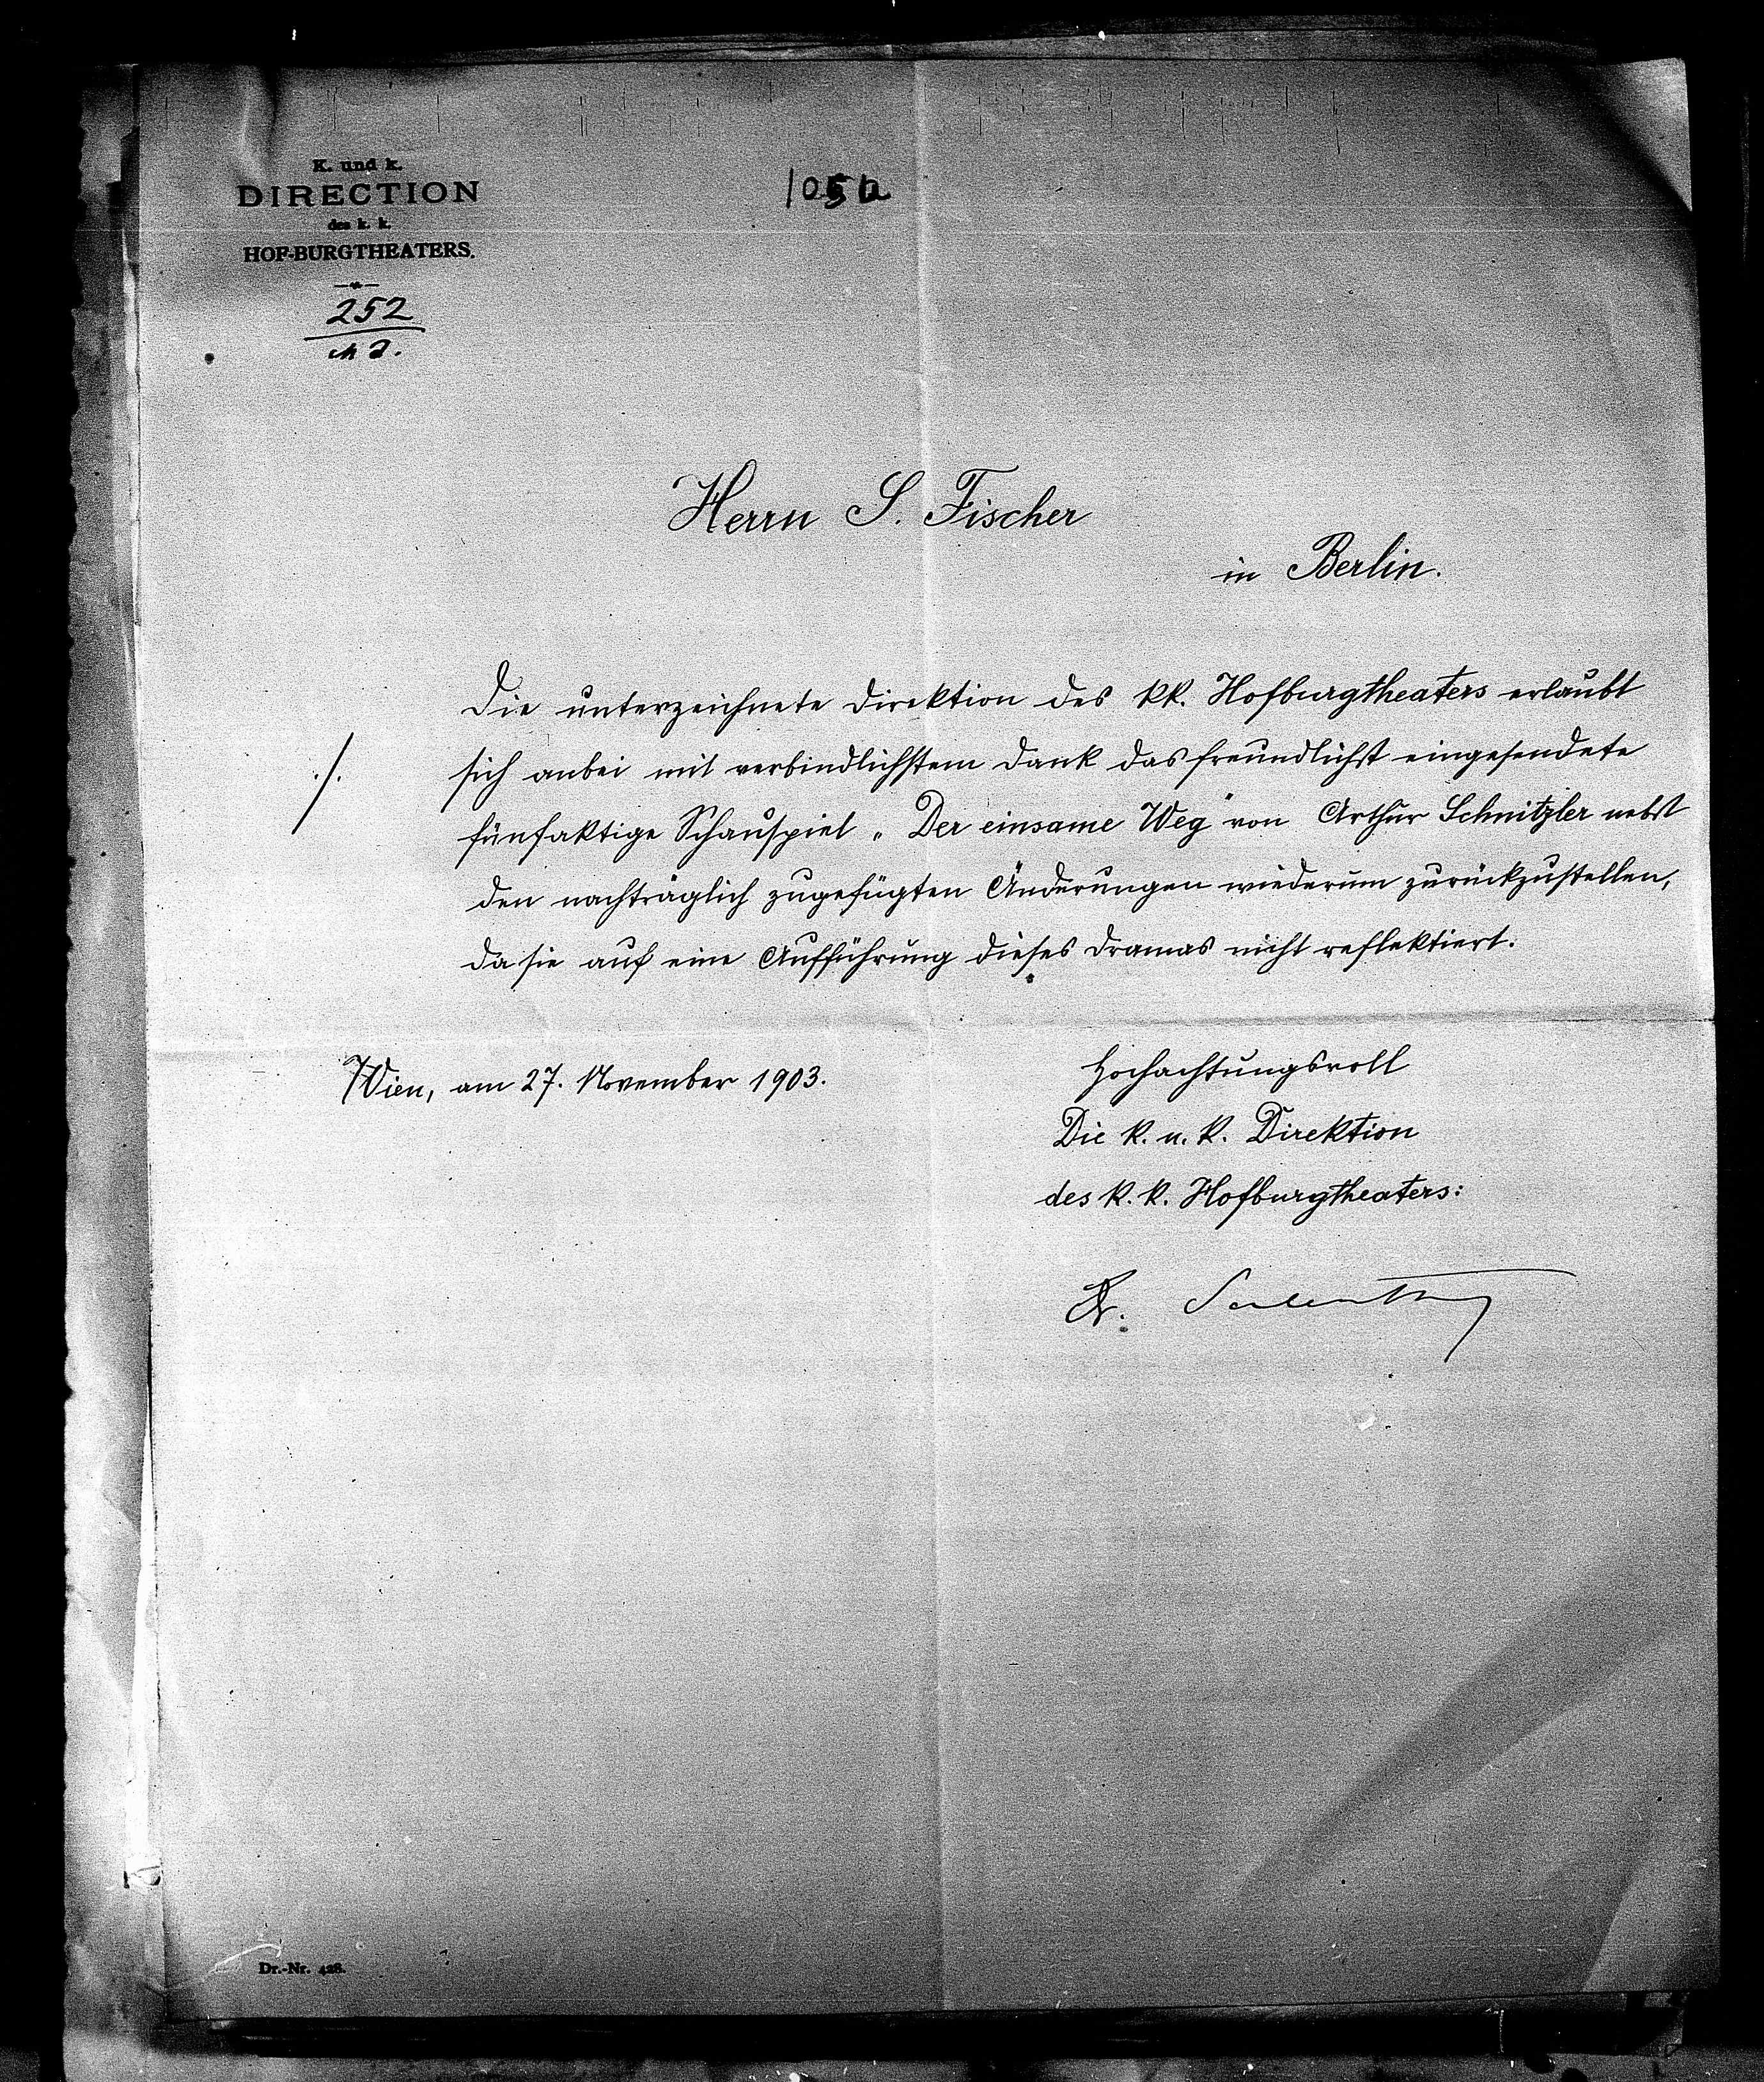 K. und k.
DIRECTION
des k. k.
HOF-BURGTHEATERS.
252
105a
Herrn S. Fischer
in Berlin.
Die unterzeichnete Direktion des kk. Hofburgtheaters erlaubt
./.
sich anbei mit verbindlichstem Dank das freundlichst eingesendete
fünfaktige Schauspiel „Der einsame Weg" von Arthur Schnitzler nebst
den nachträglich zugefügten Änderungen wiederum zurückzustellen,
da sie auf eine Aufführung dieses Dramas nicht reflektiert.
Wien, am 27. November 1903.
Hochachtungsvoll
Die k. u. k. Direktion
des k. k. Hofburgtheaters:
Dr.-Nr. 428.